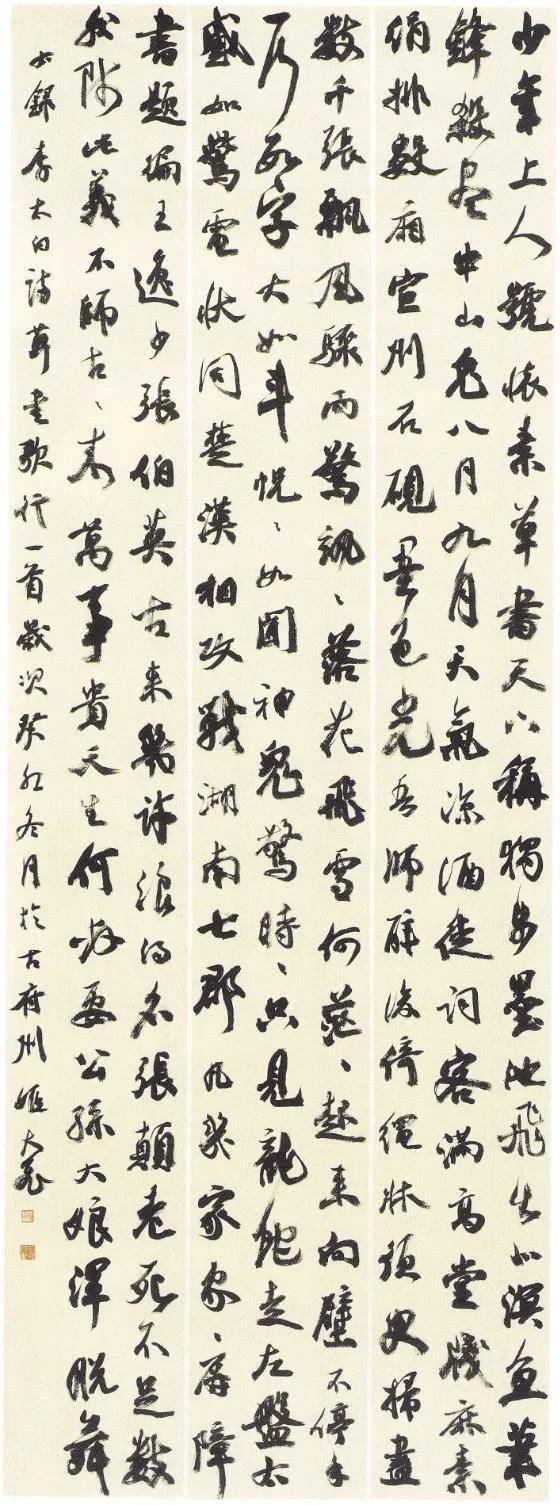 少年上人號懷素草書天下稱獨步墨池飛出北溟魚筆
鋒殺盡中山兔八月九月天氣涼酒徒詞客滿高堂牋麻素
絹排數廂宣州石硯墨色光吾師醉後倚繩床須臾掃盡
數千張飄風驟雨驚颯〻落花飛雪何茫〻起來向壁不停手
一行數字大如斗怳〻如聞神鬼驚時〻只見龍蛇走左盤右
蹙如驚電狀同楚漢相攻戰湖南七郡凡幾家家〻屏障
書題遍王逸少張伯英古來幾許浪得名張顛老死不足數
我師此義不師古〻來萬事貴天生何必要公孫大娘渾脫舞
右錄李太白詩草書歌行一首歲次癸卯冬月於古府州姬大